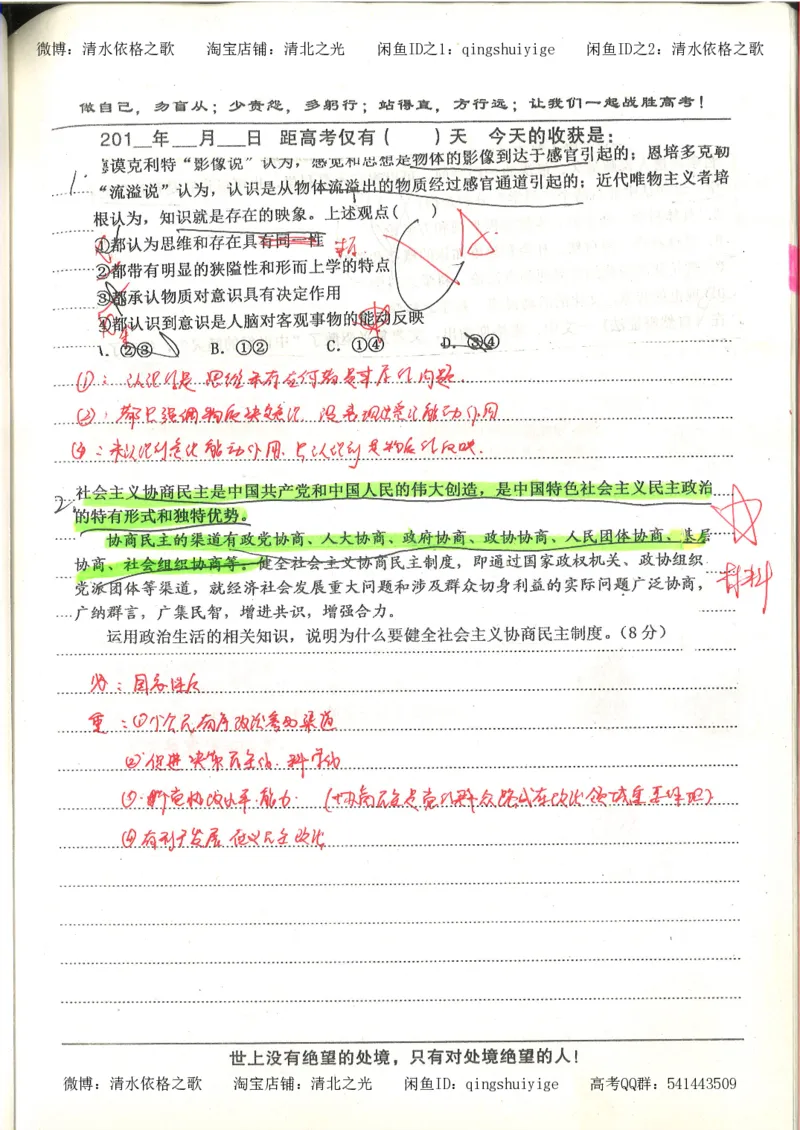 微博：清水依格之歌 淘宝店铺：清北之光 闲鱼ID之1：qingshuiyige 闲鱼ID之2：清水依格之歌
做自己，勿盲从；少责怨，多躬行；站得直，方行远；让我们一起战胜高考！
201__年___月___日 距高考仅有（ ）天 今天的收获是：
1. 谟克利特“影像说”认为，感觉和思想是物体的影像到达于感官引起的；恩培多克勒
“流溢说”认为，认识是从物体流溢出的物质经过感官通道引起的；近代唯物主义者培
根认为，知识就是存在的映象。上述观点( )
①都认为思维和存在具有同一性
②都带有明显的狭隘性和形而上学的特点
③都承认物质对意识具有决定作用
④都认识到意识是人脑对客观事物的能动反映
A. ②③ B. ①② C. ①④ D. ③④
②：都只强调物质决定意识，没表现出意识能动作用
④：未认识到意识能动作用，只认识到是物质的反映．
2. 社会主义协商民主是中国共产党和中国人民的伟大创造，是中国特色社会主义民主政治
的特有形式和独特优势。
协商民主的渠道有政党协商、人大协商、政府协商、政协协商、人民团体协商、基层
协商、社会组织协商等。健全社会主义协商民主制度，即通过国家政权机关、政协组织
党派团体等渠道，就经济社会发展重大问题和涉及群众切身利益的实际问题广泛协商，
材料
广纳群言，广集民智，增进共识，增强合力。
运用政治生活的相关知识，说明为什么要健全社会主义协商民主制度。（8分）
必：国家性质
重：①个人有序政治参与渠道
②促进决策民主化、科学化
④有利于发展社会主义民主政治
世上没有绝望的处境，只有对处境绝望的人！
微博：清水依格之歌 淘宝店铺：清北之光 闲鱼ID：qingshuiyige 高考QQ群：541443509